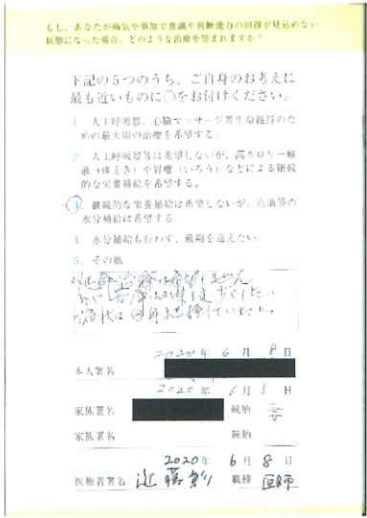 もし、あなたが病気や事故で意識や判断能力の回復が見込めない
状態になった場合、どのような治療を望まれますか?
下記の5つのうち、ご自身のお考えに
最も近いものに○をお付けください。
1. 人工呼吸器、心臓マッサージ等生命維持のた
めの最大限の治療を希望する。
2. 人工呼吸器等は希望しないが、高カロリー輸
液(ゆえき)や胃瘻(いろう)などによる継続
的な栄養補給を希望する。
3 継続的な栄養補給は希望しないが、点滴等の
水分補給は希望する
4. 水分補給も行わず、最期を迎えたい
5. その他
2020年 6月 8日
本人署名
2020年 6月 8日
家族署名 続柄 妻
家族署名 続柄
2020年 6月 8日
医療者署名 近藤 職種 医師